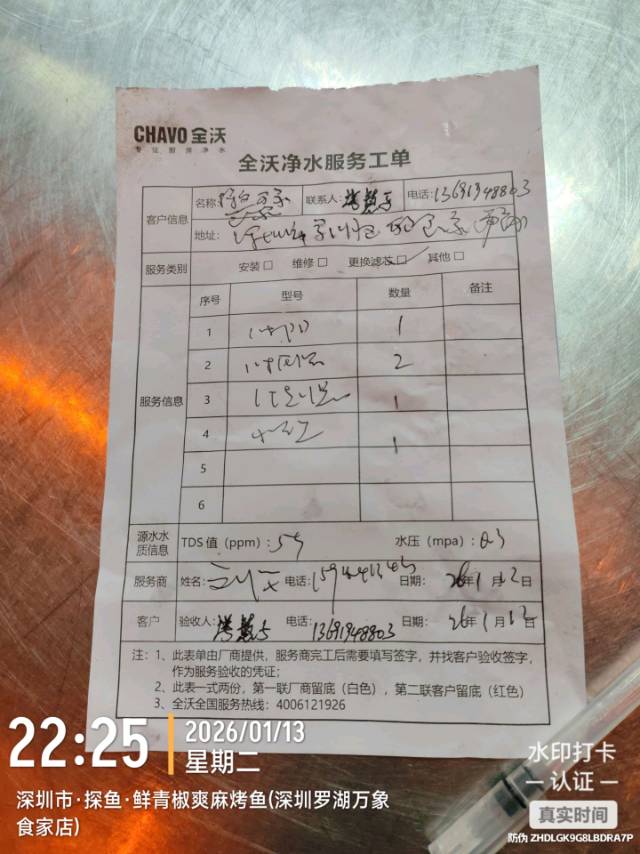 CHAVO 全沃
专业厨房净水
全沃净水服务工单
客户信息
名称:
联系人:
电话: 13691948803
地址:
服务类别 安装□ 维修□ 更换滤芯□ 其他□
服务信息
序号 型号 数量 备注
1 1
2 2
3 1
4 1
5
6
源水水质信息 TDS 值（ppm）: 59 水压（mpa）: 0.3
服务商 姓名: 电话: 日期: 26年1月12日
客户 验收人: 电话: 13691948803 日期: 26年1月12日
注：1、此表单由厂商提供，服务商完工后需要填写签字，并找客户验收签字，
作为服务验收的凭证；
2、此表一式两份，第一联厂商留底（白色），第二联客户留底（红色）
3、全沃全国服务热线：4006121926
22:25
2026/01/13
星期二
深圳市·探鱼·鲜青椒爽麻烤鱼(深圳罗湖万象
食家店)
水印打卡
认证
真实时间
防伪 ZHDLGK9G8LBDRA7P